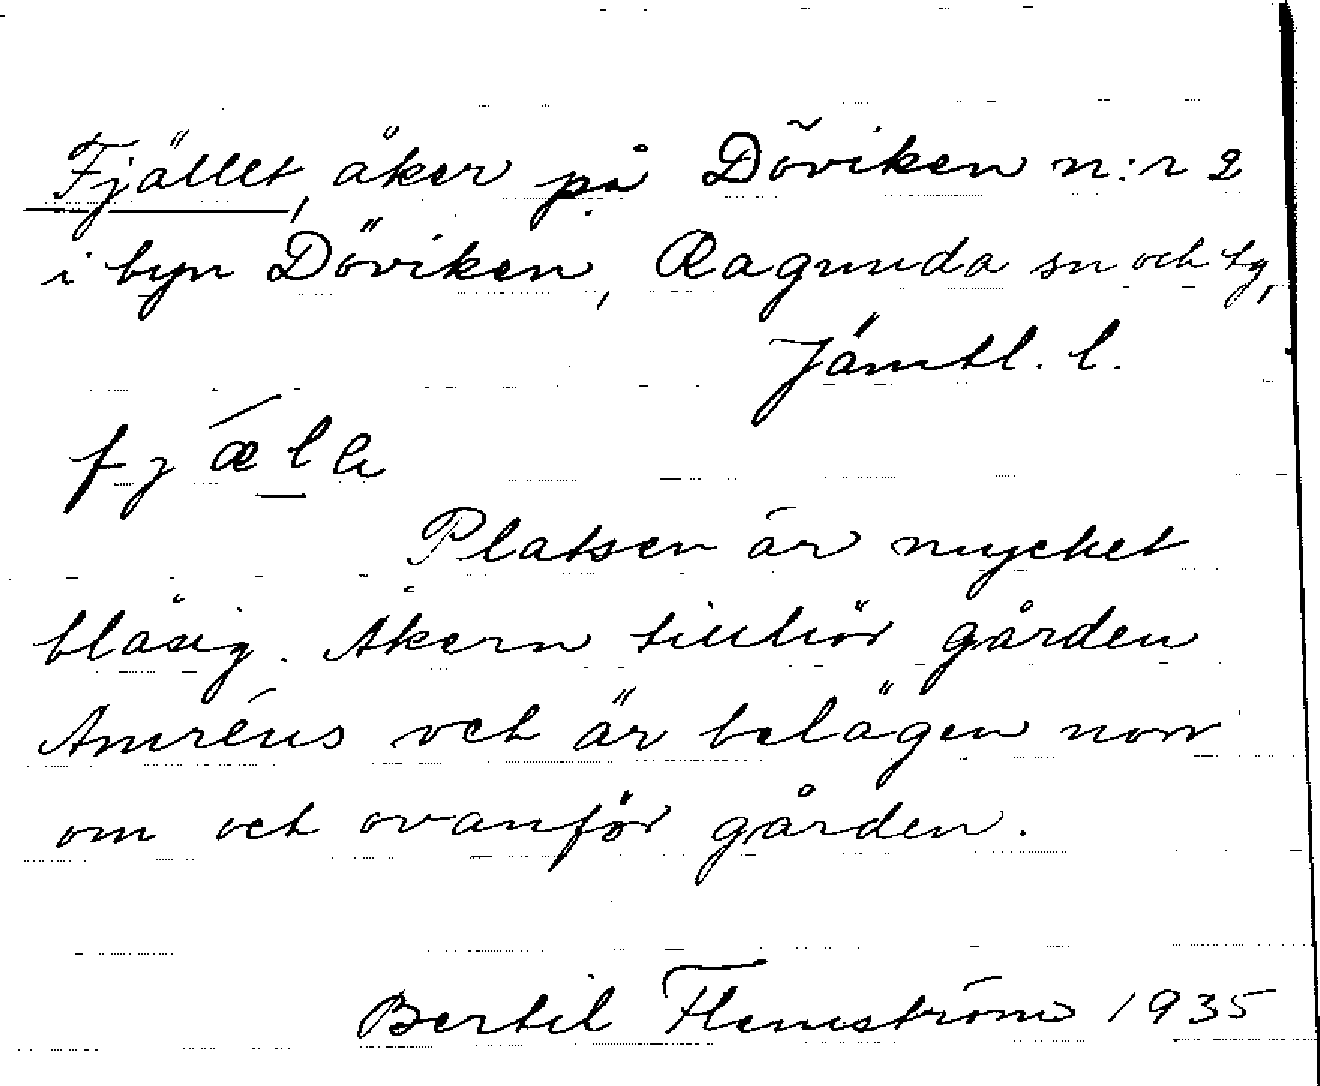 Fjället, åker på Döviken n:r 2
i byn Döviken, Ragunda sn och tg,
Jämtl. l.
fjælle
Platsen är mycket
blåsig. Åkern tillhör gården
Amréus och är belägen norr
om och ovanför gården.
Bertil Flemström 1935